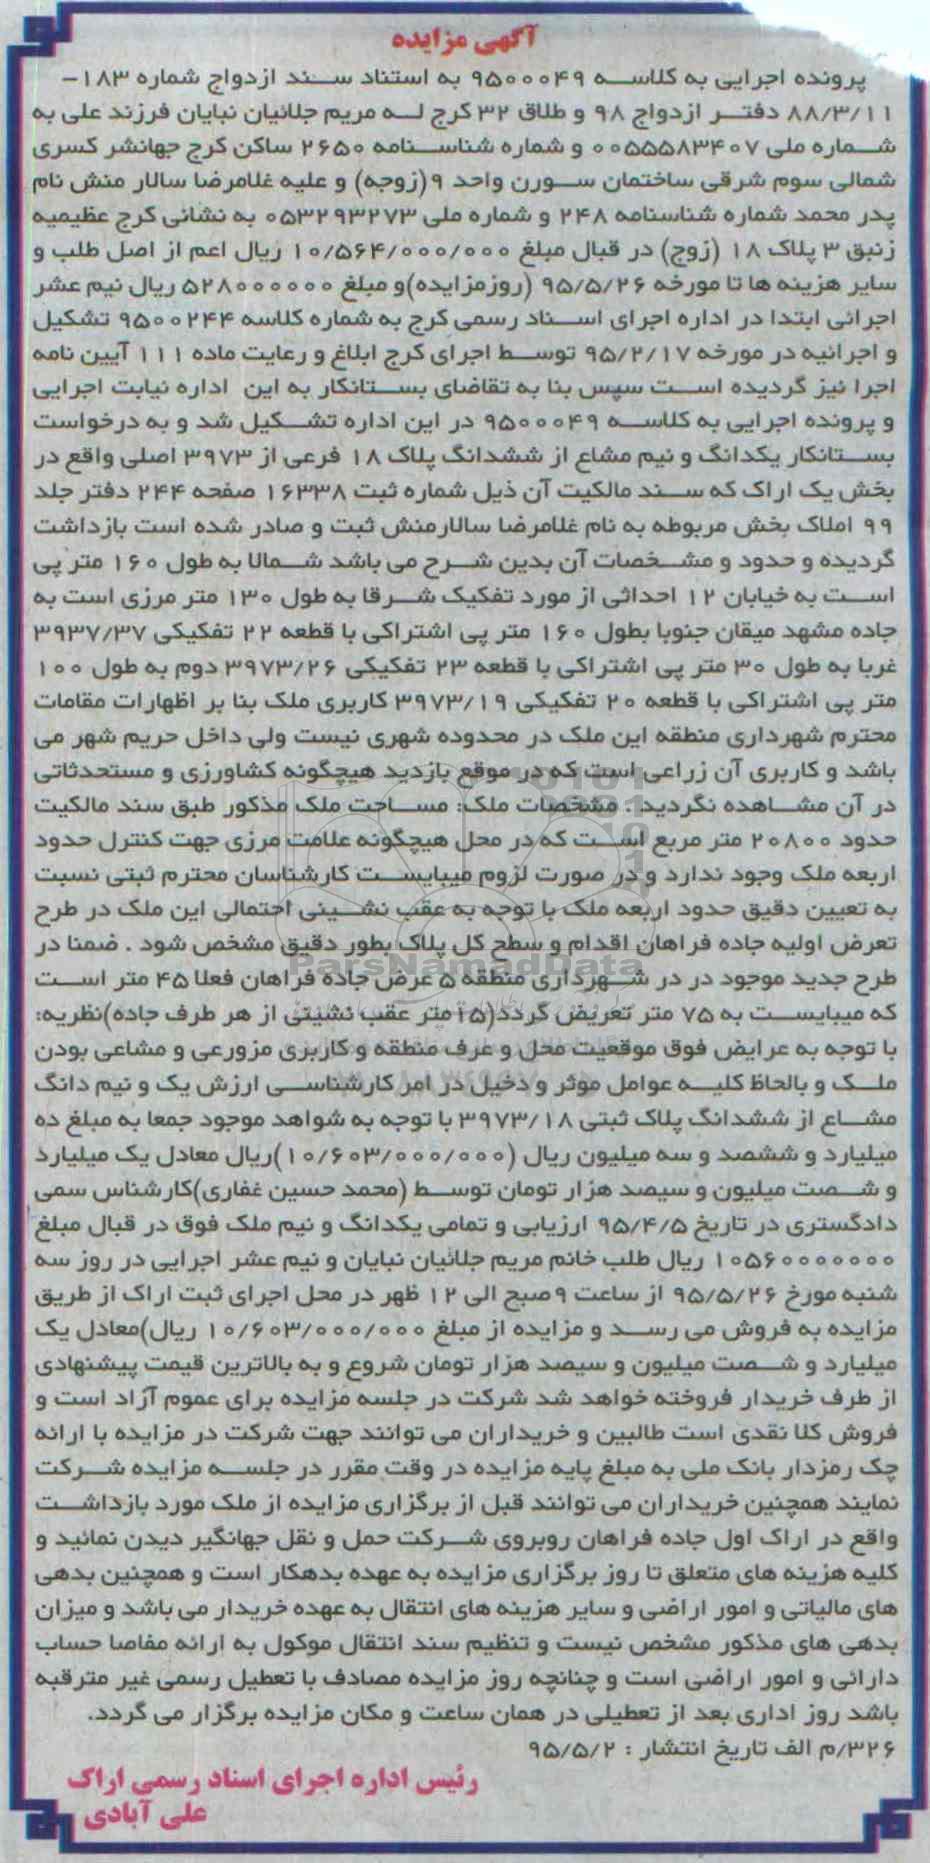 آگهی مزایده
پرونده اجرایی به کلاسه ۹۵۰۰۰۴۹ به استناد سند ازدواج شماره ۱۸۳-
۸۸/۳/۱۱ دفتر ازدواج ۹۸ و طلاق ۳۲ کرج له مریم جلائیان نبایان فرزند علی به
شماره ملی ۰۰۵۵۵۸۳۴۰۷ و شماره شناسنامه ۲۶۵۰ ساکن کرج جهانشر کسری
شمالی سوم شرقی ساختمان سورن واحد ۹(زوجه) و علیه غلامرضا سالار منش نام
پدر محمد شماره شناسنامه ۲۴۸ و شماره ملی ۰۵۳۲۹۳۲۷۳ به نشانی کرج عظیمیه
زنبق ۳ پلاک ۱۸ (زوج) در قبال مبلغ ۱۰/۵۶۴/۰۰۰/۰۰۰ ریال اعم از اصل طلب و
سایر هزینه ها تا مورخه ۹۵/۵/۲۶ (روزمزایده)و مبلغ ۵۲۸۰۰۰۰۰۰ ریال نیم عشر
اجرائی ابتدا در اداره اجرای اسناد رسمی کرج به شماره کلاسه ۹۵۰۰۲۴۴ تشکیل
و اجرائیه در مورخه ۹۵/۲/۱۷ توسط اجرای کرج ابلاغ و رعایت ماده ۱۱۱ آیین نامه
اجرا نیز گردیده است سپس بنا به تقاضای بستانکار به این اداره نیابت اجرایی
و پرونده اجرایی به کلاسه ۹۵۰۰۰۴۹ در این اداره تشکیل شد و به درخواست
بستانکار یکدانگ و نیم مشاع از ششدانگ پلاک ۱۸ فرعی از ۳۹۷۳ اصلی واقع در
بخش یک اراک که سند مالکیت آن ذیل شماره ثبت ۱۶۳۳۸ صفحه ۲۴۴ دفتر جلد
۹۹ املاک بخش مربوطه به نام غلامرضا سالارمنش ثبت و صادر شده است بازداشت
گردیده و حدود و مشخصات آن بدین شرح می باشد شمالا به طول ۱۶۰ متر پی
است به خیابان ۱۲ احداثی از مورد تفکیک شرقا به طول ۱۳۰ متر مرزی است به
جاده مشهد میقان جنوبا بطول ۱۶۰ متر پی اشتراکی با قطعه ۲۲ تفکیکی ۳۹۳۷/۳۷
غربا به طول ۳۰ متر پی اشتراکی با قطعه ۲۳ تفکیکی ۳۹۷۳/۲۶ دوم به طول ۱۰۰
متر پی اشتراکی با قطعه ۲۰ تفکیکی ۳۹۷۳/۱۹ کاربری ملک بنا بر اظهارات مقامات
محترم شهرداری منطقه این ملک در محدوده شهری نیست ولی داخل حریم شهر می
باشد و کاربری آن زراعی است که در موقع بازدید هیچگونه کشاورزی و مستحدثاتی
در آن مشاهده نگردید . مشخصات ملک: مساحت ملک مذکور طبق سند مالکیت
حدود ۲۰۸۰۰ متر مربع است که در محل هیچگونه علامت مرزی جهت کنترل حدود
اربعه ملک وجود ندارد و در صورت لزوم میبایست کارشناسان محترم ثبتی نسبت
به تعیین دقیق حدود اربعه ملک با توجه به عقب نشینی احتمالی این ملک در طرح
تعرض اولیه جاده فراهان اقدام و سطح کل پلاک بطور دقیق مشخص شود . ضمنا در
طرح جدید موجود در در شهرداری منطقه ۵ عرض جاده فراهان فعلا ۴۵ متر است
که میبایست به ۷۵ متر تعریض گردد(۱۵متر عقب نشینی از هر طرف جاده)نظریه:
با توجه به عرایض فوق موقعیت محل و عرف منطقه و کاربری مزورعی و مشاعی بودن
ملک و بالحاظ کلیه عوامل موثر و دخیل در امر کارشناسی ارزش یک و نیم دانگ
مشاع از ششدانگ پلاک ثبتی ۳۹۷۳/۱۸ با توجه به شواهد موجود جمعا به مبلغ ده
میلیارد و ششصد و سه میلیون ریال (۱۰/۶۰۳/۰۰۰/۰۰۰)ریال معادل یک میلیارد
و شصت میلیون و سیصد هزار تومان توسط (محمد حسین غفاری)کارشناس سمی
دادگستری در تاریخ ۹۵/۴/۵ ارزیابی و تمامی یکدانگ و نیم ملک فوق در قبال مبلغ
۱۰۵۶۰۰۰۰۰۰۰ ریال طلب خانم مریم جلائیان نبایان و نیم عشر اجرایی در روز سه
شنبه مورخ ۹۵/۵/۲۶ از ساعت ۹صبح الی ۱۲ ظهر در محل اجرای ثبت اراک از طریق
مزایده به فروش می رسد و مزایده از مبلغ ۱۰/۶۰۳/۰۰۰/۰۰۰ ریال)معادل یک
میلیارد و شصت میلیون و سیصد هزار تومان شروع و به بالاترین قیمت پیشنهادی
از طرف خریدار فروخته خواهد شد شرکت در جلسه مزایده برای عموم آزاد است و
فروش کلا نقدی است طالبین و خریداران می توانند جهت شرکت در مزایده با ارائه
چک رمزدار بانک ملی به مبلغ پایه مزایده در وقت مقرر در جلسه مزایده شرکت
نمایند همچنین خریداران می توانند قبل از برگزاری مزایده از ملک مورد بازداشت
واقع در اراک اول جاده فراهان روبروی شرکت حمل و نقل جهانگیر دیدن نمائید و
کلیه هزینه های متعلق تا روز برگزاری مزایده به عهده بدهکار است و همچنین بدهی
های مالیاتی و امور اراضی و سایر هزینه های انتقال به عهده خریدار می باشد و میزان
بدهی های مذکور مشخص نیست و تنظیم سند انتقال موکول به ارائه مفاصا حساب
دارائی و امور اراضی است و چنانچه روز مزایده مصادف با تعطیل رسمی غیر مترقبه
باشد روز اداری بعد از تعطیلی در همان ساعت و مکان مزایده برگزار می گردد.
۳۲۶/م الف تاریخ انتشار : ۹۵/۵/۲
رئیس اداره اجرای اسناد رسمی اراک
علی آبادی
ParsNamadData